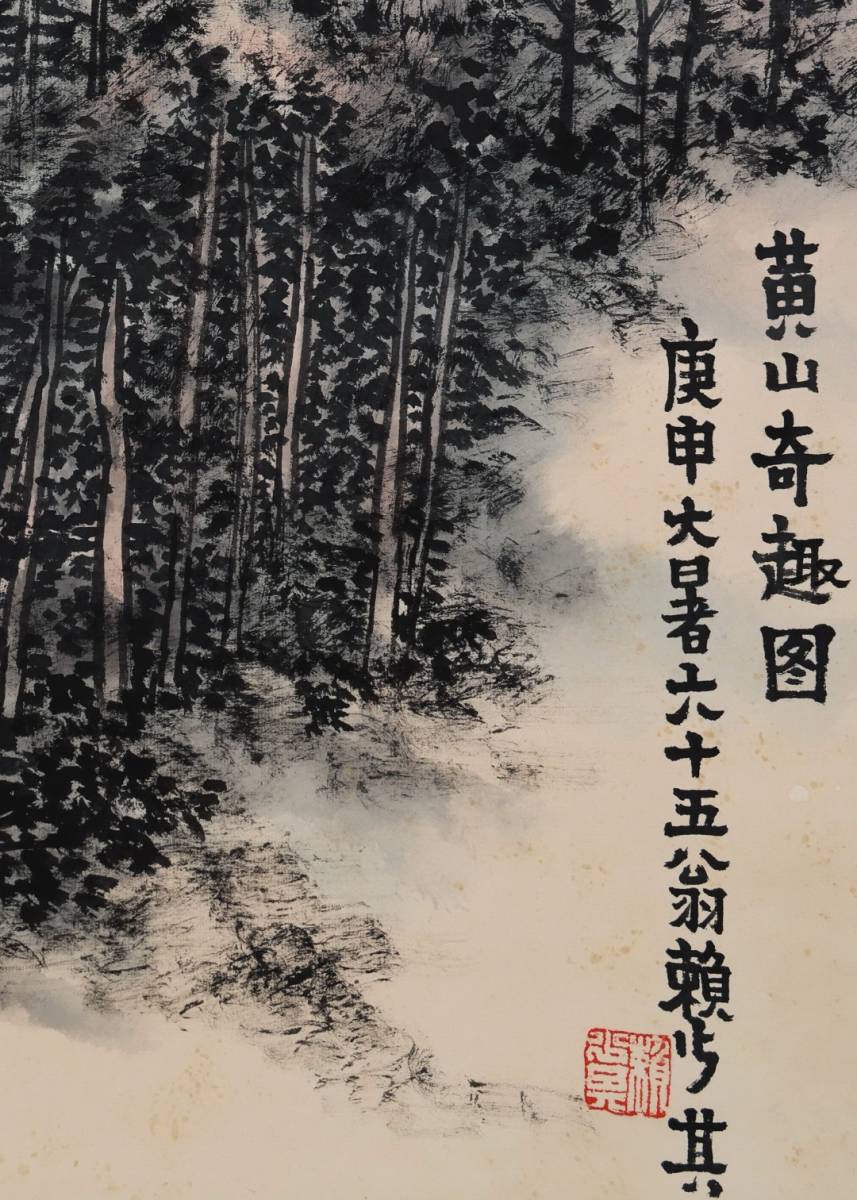 黄山奇趣图
庚申大暑六十五翁賴少其
賴少其